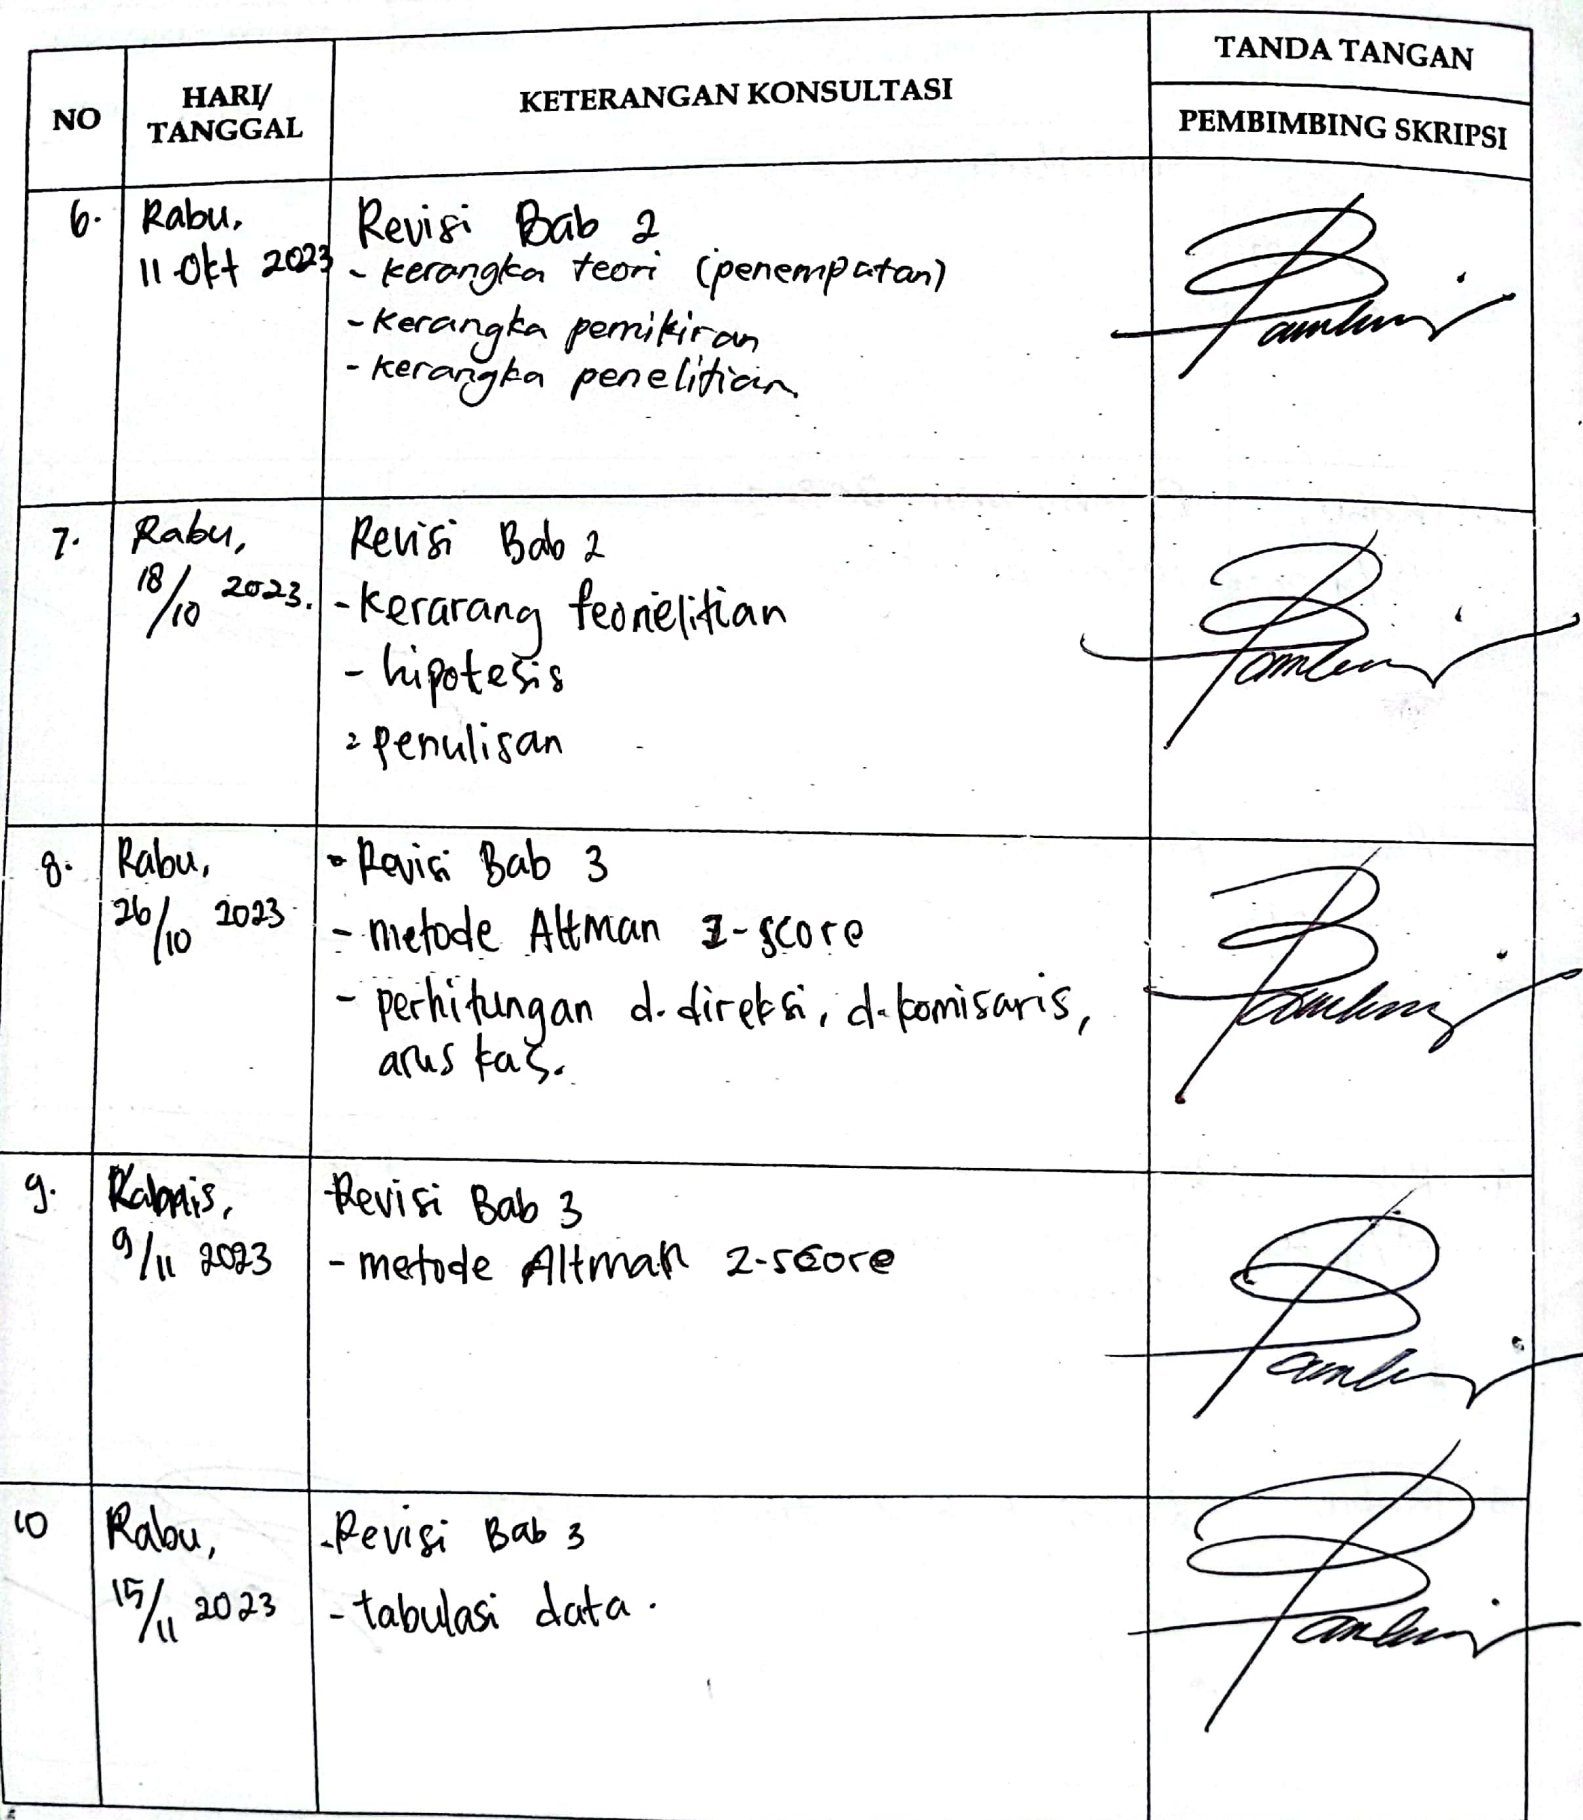 NO
HARI/
TANGGAL
KETERANGAN KONSULTASI
TANDA TANGAN
PEMBIMBING SKRIPSI
6.
Rabu,
11 Okt 2023
Revisi Bab 2
- kerangka teori (penempatan)
- kerangka pemikiran
- kerangka penelitian
7.
Rabu,
18/10 2023.
Revisi Bab 2
- kerarang
- hipotesis
- penulisan
8.
Rabu,
26/10 2023
- Revisi Bab 3
- metode Altman z-score
- perhitungan d. direksi, d. komisaris,
arus kas.
9.
9/11 2023
- Revisi Bab 3
- metode Altman z-score
10
Rabu,
15/11 2023
- Revisi Bab 3
- tabulasi data.